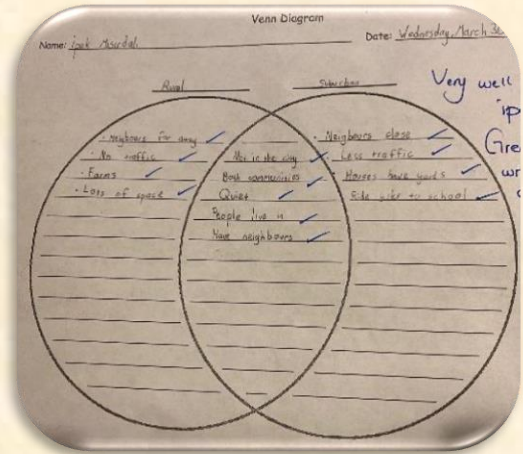 Venn Diagram
Name: ipek Date: Wednesday, March
Rural Suburban
Very well
ip
Gre
wr
· Neighbours far away
· No traffic
· Farms
· Lots of space
Not in the city
Both communities
Quiet
People live in
Have neighbours
· Neighbours close
· Less traffic
· Houses have yards
Ride bike to school